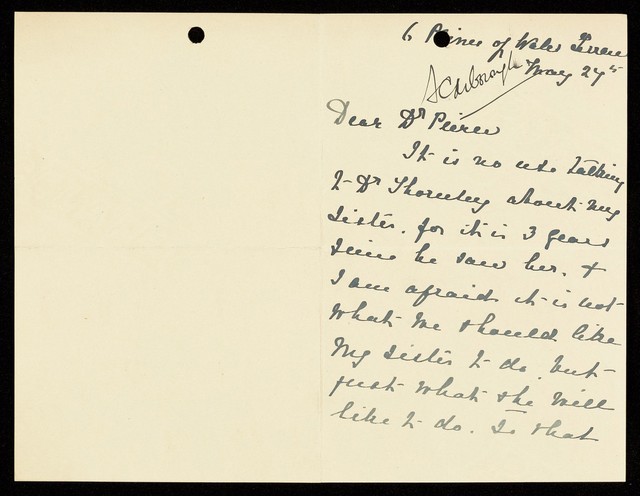 6 Prince of Wales Terrace
Scarborough May 29th
Dear Dr Peirce
It is no use talking
to Dr Thornley about my
Sister, for it is 3 years
since he saw her. &
I am afraid it is not
what we should like
My Sister to do, but
just what she will
like to do. Is that